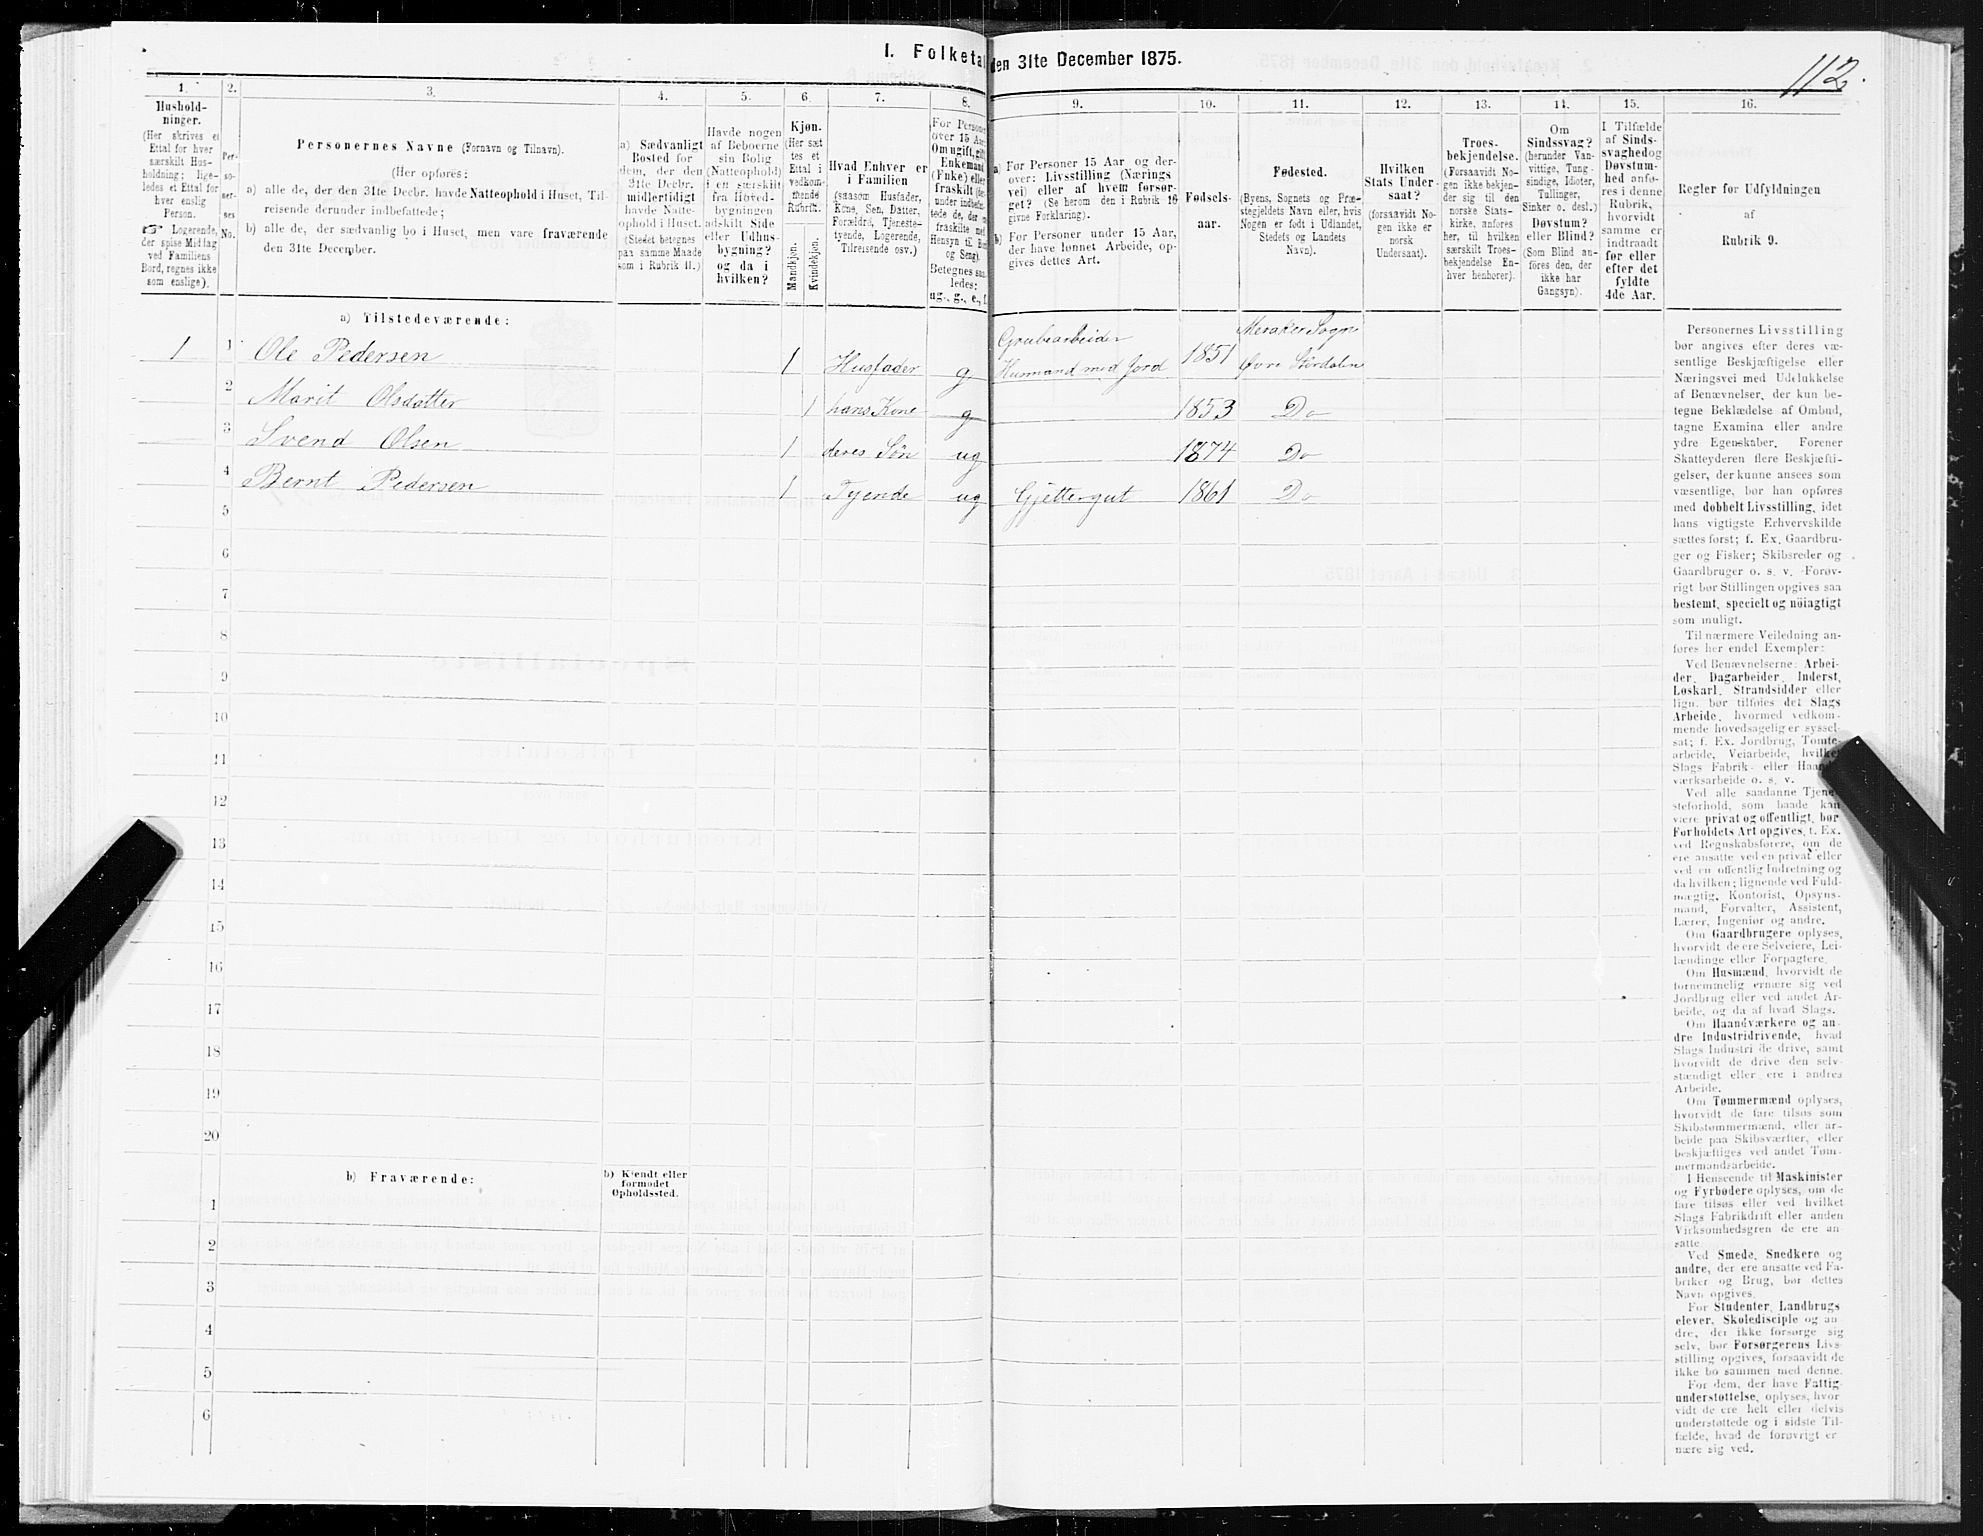 112.
I. Folketal den 31te December 1875.
1. 2. 3. 4. 5. 6. 7. 8. 9. 10. 11. 12. 13. 14. 15. 16.
Hushold-
ninger.
(Her skrives et
Ettal for hver
særskilt Hus-
holdning; lige-
ledes et Ettal for
hver enslig
Person.
☞ Logerende,
der spise Middag
ved Familiens
Bord, regnes ikke
som enslige).
Per-
so-
ner-
nes
No.
Personernes Navne (Fornavn og Tilnavn).
(Her opføres:
a) alle de, der den 31te Decbr. havde Natteophold i Huset, Til-
reisende derunder indbefattede;
b) alle de, der sædvanlig bo i Huset, men vare fraværende
den 31te December.
a) Sædvanligt
Bosted for
dem, der den
31te Decbr.
midlertidigt
havde Natte-
ophold i Huset.
(Stedet betegnes
paa samme Maade
som i Rubrik 11.)
Havde nogen
af Beboerne
sin Bolig
(Natteophold)
i en særskilt
fra Hoved-
bygningen
adskilt Side
eller Udhus-
bygning?
og da i
hvilken?
Kjøn.
(Her sæt-
tes et
Ettal i
vedkom-
mende
Rubrik.
Mandkjøn.
Kvindekjøn.
Hvad Enhver er
i Familien
(saasom Husfader,
Kone, Søn, Datter,
Forældre, Tjeneste-
tyende, Logerende,
Tilreisende osv.)
For Personer
over 15 Aar:
Om ugift, gift,
Enkemand
(Enke) eller
fraskilt
Betegnes saa-
ledes:
ug., g., e., f.
a) For Personer 15 Aar og der-
over: Livsstilling (Nærings-
vei) eller af hvem forsør-
get? (Se herom den i Rubrik 16
givne Forklaring).
b) For Personer under 15 Aar,
der have lønnet Arbeide, op-
gives dettes Art.
Fødsels-
aar.
Fødested.
(Byens, Sognets og Præ-
stegjeldets Navn eller, hvis
Nogen er født i Udlandet,
Stedets og Landets
Navn).
Hvilken
Stats Under-
saat?
(forsaavidt No-
gen ikke er
norsk
Undersaat).
Troes-
bekjendelse.
(Forsaavidt No-
gen ikke bekjen-
der sig til den
norske Stats-
kirke, anføres
her, til hvilken
særskilt Troes-
bekjendelse En-
hver henhører).
Om
Sindssvag?
(herunder Van-
vittige, Tung-
sindige, Idioter,
Tullinger,
Sinker o. desl.)
Døvstum?
eller Blind?
(Som Blind an-
føres den, der
ikke har
Gangsyn).
I Tilfælde
af Sinds-
svaghed og
Døvstum-
hed anfø-
res i denne
Rubrik,
hvorvidt
samme er
indtraadt
før eller
efter det
fyldte
4de Aar.
Regler for Udfyldningen
af
Rubrik 9.
a) Tilstedeværende:
1 1 Ole Pedersen 1 Husfader g Grubearbeider Husmand med Jord 1851 Meraker Sogn Øvre Stördalen
2 Marit Olsdatter 1 hans Kone g 1853 Do
3 Svend Olsen 1 deres Sön ug 1874 Do
4 Bernt Pedersen 1 Tyende ug Gjettergut 1861 Do
5
6
7
8
9
10
11
12
13
14
15
16
17
18
19
20
b) Fraværende:
b) Kjendt eller
formodet
Opholdssted.
1
2
3
4
5
6
Personernes Livsstilling
bør angives efter deres væ-
sentlige Beskjæftigelse eller
Næringsvei med Udelukkelse
af Benævnelser, der kun be-
tegne Beklædelse af Ombud,
tagne Examina eller andre
ydre Egenskaber. Forener
Skatteyderen flere Beskjæfti-
gelser, der kunne ansees som
væsentlige, bør han opføres
med dobbelt Livsstilling, idet
hans vigtigste Erhvervskilde
sættes først; f. Ex. Gaardbru-
ger og Fisker; Skibsreder og
Gaardbruger o. s. v. Forøv-
rigt bør Stillingen opgives saa
bestemt, specielt og nöiagtigt
som muligt.
Til nærmere Veiledning an-
føres her endel Exempler:
Ved Benævnelserne: Arbei-
der, Dagarbeider, Inderst,
Løskarl, Strandsidder eller
lign. bør tilføies det Slags
Arbeide, hvormed vedkom-
mende hovedsagelig er syssel-
sat; f. Ex. Jordbrug, Tomte-
arbeide, Veiarbeide, hvilket
Slags Fabrik- eller Haand-
værksarbeide o. s. v.
Ved alle saadanne Tjene-
steforhold, som baade kan
være privat og offentligt, bør
Forholdets Art opgives, f. Ex.
ved Regnskabsførere, om de
ere ansatte ved en privat eller
ved en offentlig Indretning og
da hvilken; lignende ved Fuld-
mægtig, Kontorist, Opsyns-
mand, Forvalter, Assistent,
Lærer, Ingeniør og andre.
Om Gaardbrugere oplyses,
hvorvidt de ere Selveiere, Lei-
lændinge eller Forpagtere.
Om Husmænd, hvorvidt de
fornemmelig ernære sig ved
Jordbrug eller ved andet Ar-
beide, og da af hvad Slags.
Om Haandværkere og an-
dre Industridrivende, hvad
Slags Industri de drive, samt
hvorvidt de drive den selv-
stændigt eller ere i andres
Arbeide.
Om Tømmermænd oplyses,
hvorvidt de fare tilsøs som
Skibstømmermænd, eller ar-
beide paa Skibsværfter, eller
beskjæftiges ved andet Tøm-
mermandsarbeide.
I Henseende til Maskinister
og Fyrbødere oplyses, om de
fare tilsøs eller ved hvilket
Slags Fabrikdrift eller anden
Virksomhedsgren de ere an-
satte.
Ved Smede, Snedkere og
andre, der ere ansatte ved Fa-
briker og Brug, bør dettes
Navn opgives.
For Studenter, Landbrugs-
elever, Skoledisciple og an-
dre, der ikke forsørge sig
selv, bør Forsørgerens Livs-
stilling opgives, forsaavidt de
ikke bo sammen med denne.
For dem, der have Fattig-
understøttelse, oplyses, hvor-
vidt de ere helt eller delvis
understøttede og i sidste Til-
fælde, hvad de forøvrigt er-
nære sig ved.